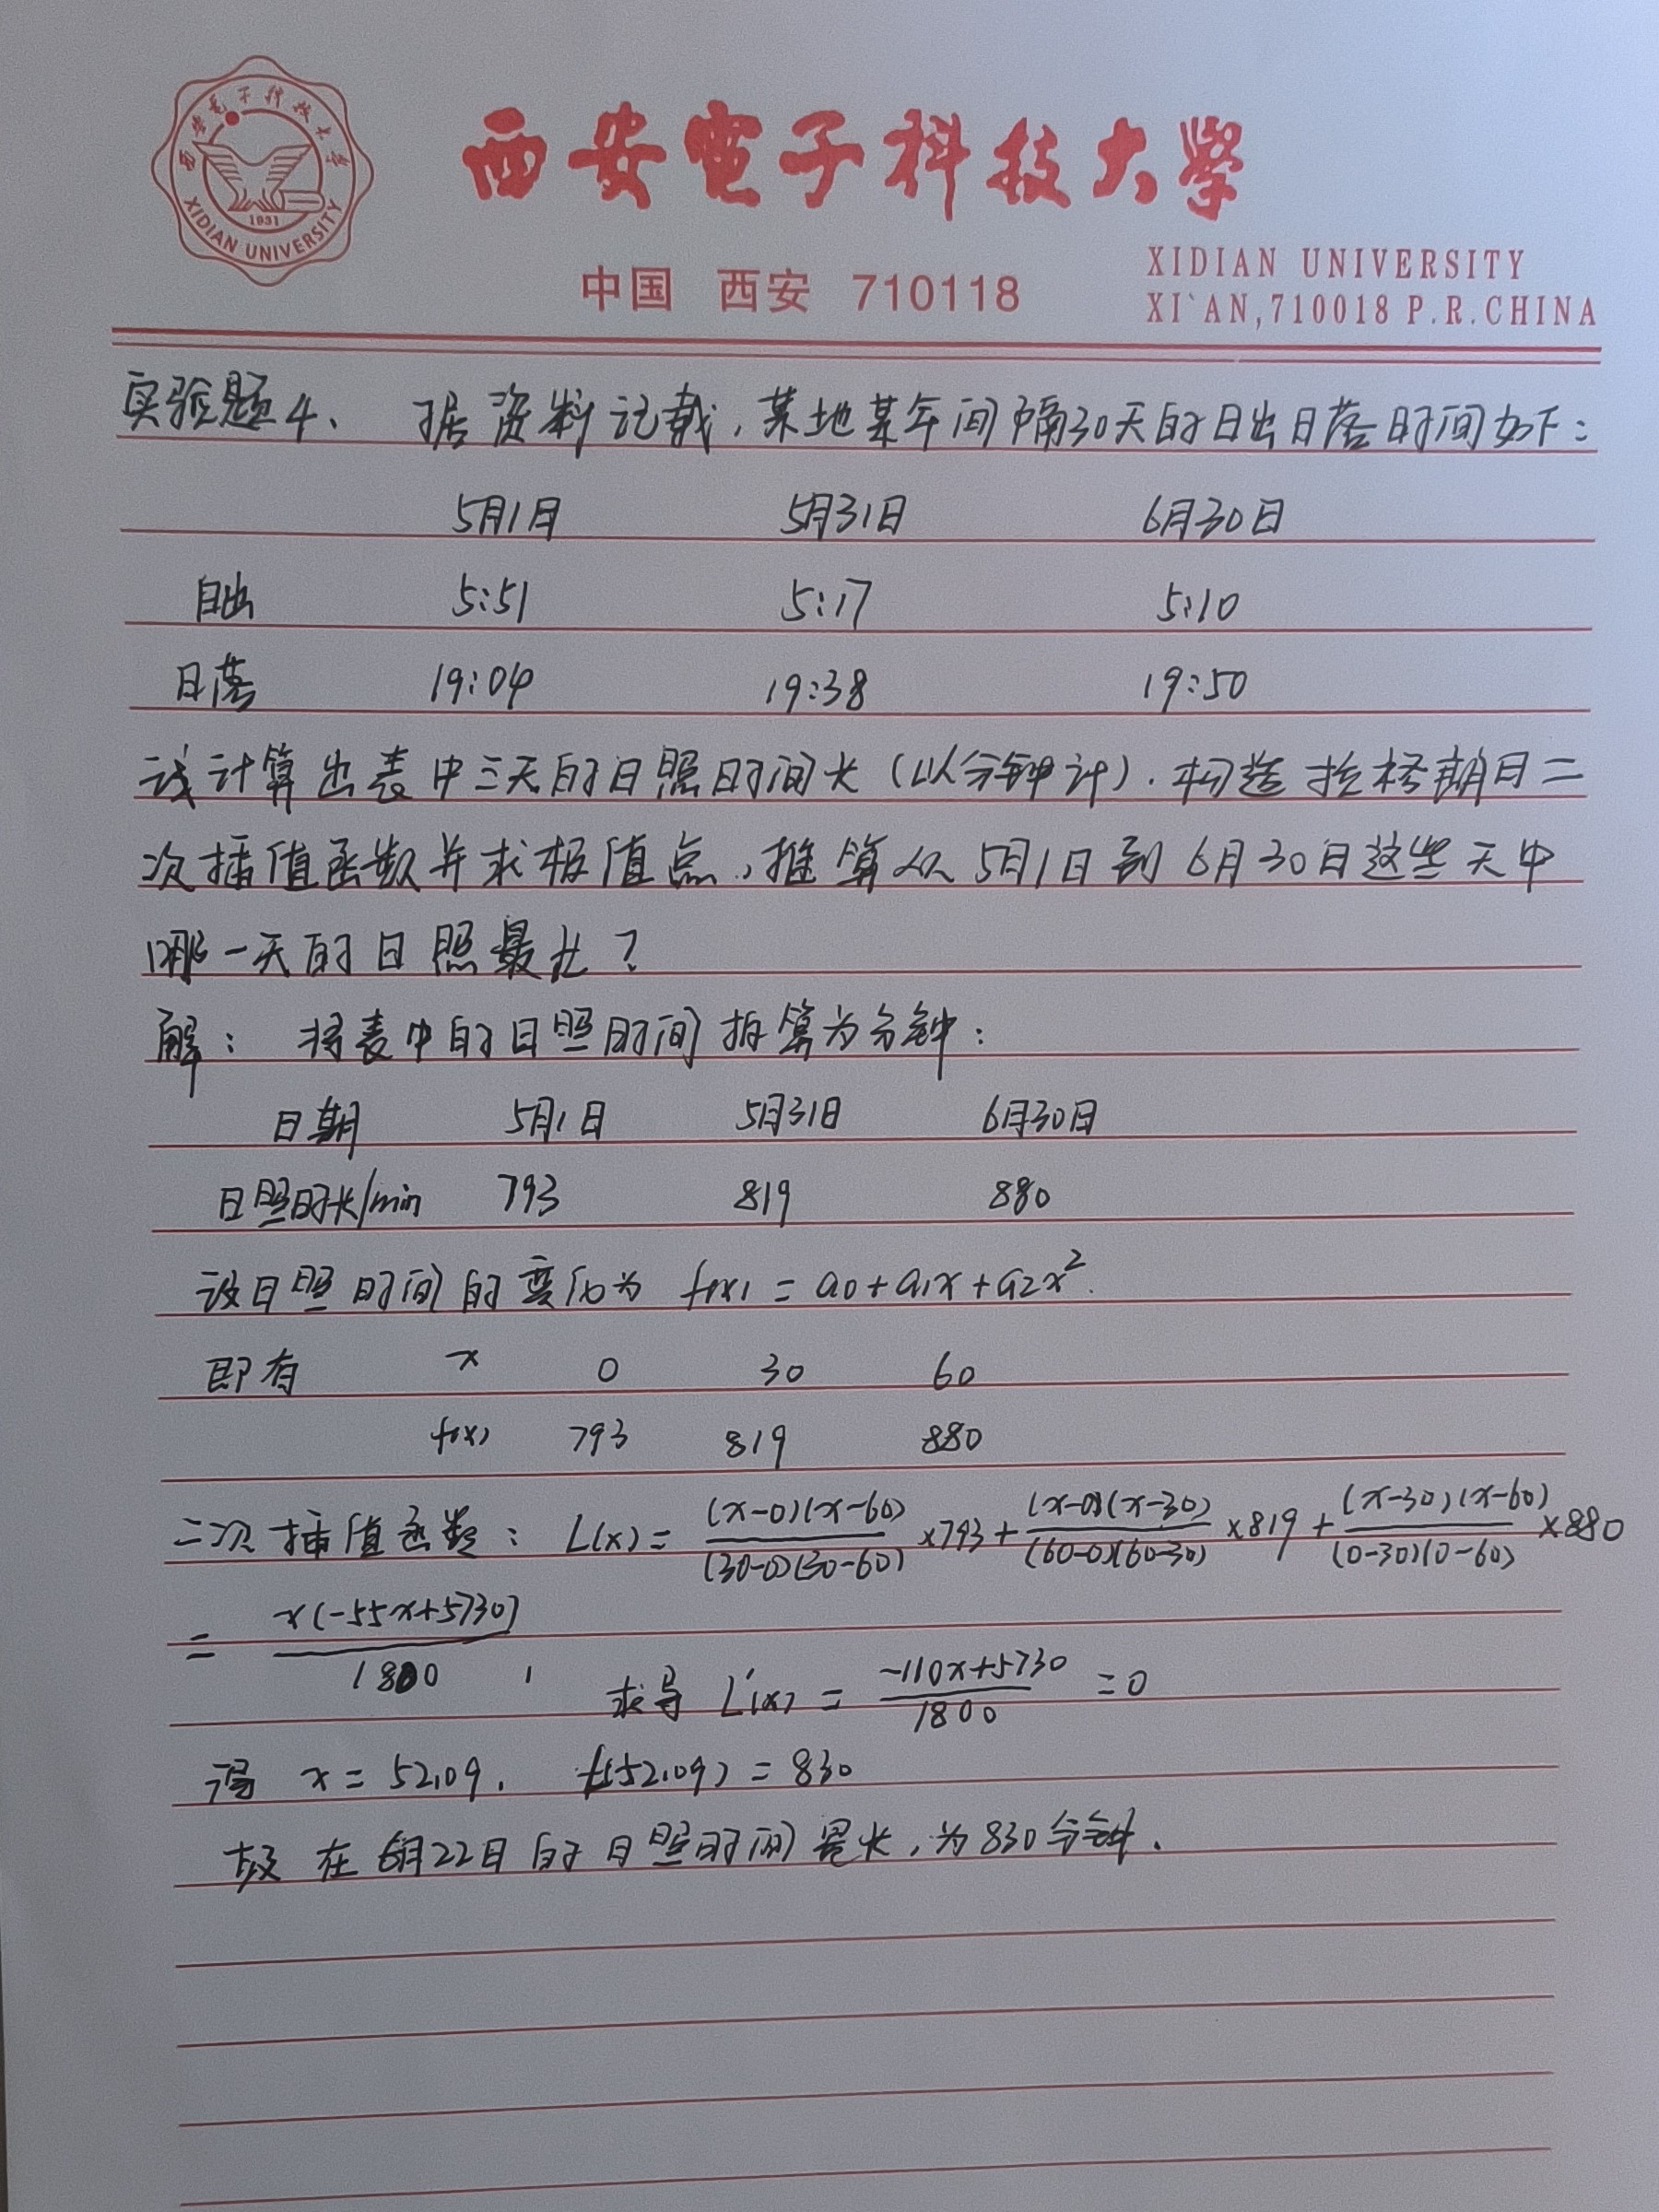 西安电子科技大学
XIDIAN UNIVERSITY
1931
西安電子科技大學
中国 西安 710118
XIDIAN UNIVERSITY
XI`AN,710018 P.R.CHINA
实验题4、 据资料记载,某地某年间隔30天的日出日落时间如下:
5月1日 5月31日 6月30日
日出 5:51 5:17 5:10
日落 19:04 19:38 19:50
试计算出表中三天的日照时间长(以分钟计).构造拉格朗日二
次插值函数并求极值点,推算从5月1日到6月30日这些天中
哪一天的日照最长?
解: 将表中的日照时间折算为分钟:
日期 5月1日 5月31日 6月30日
日照时长/min 793 819 880
设日照时间的变化为 f(x) = a0+a1x+a2x².
即有 x 0 30 60
f(x) 793 819 880
二次插值函数: L(x)= (x-0)(x-60)/(30-0)(30-60) ×793 + (x-0)(x-30)/(60-0)(60-30) ×819 + (x-30)(x-60)/(0-30)(0-60) ×880
= x(-55x+5730)/1800 , 求导 L'(x) = -110x+5730/1800 =0
得 x = 52.09, f(52.09) = 830
故 在6月22日的日照时间最长,为830分钟.